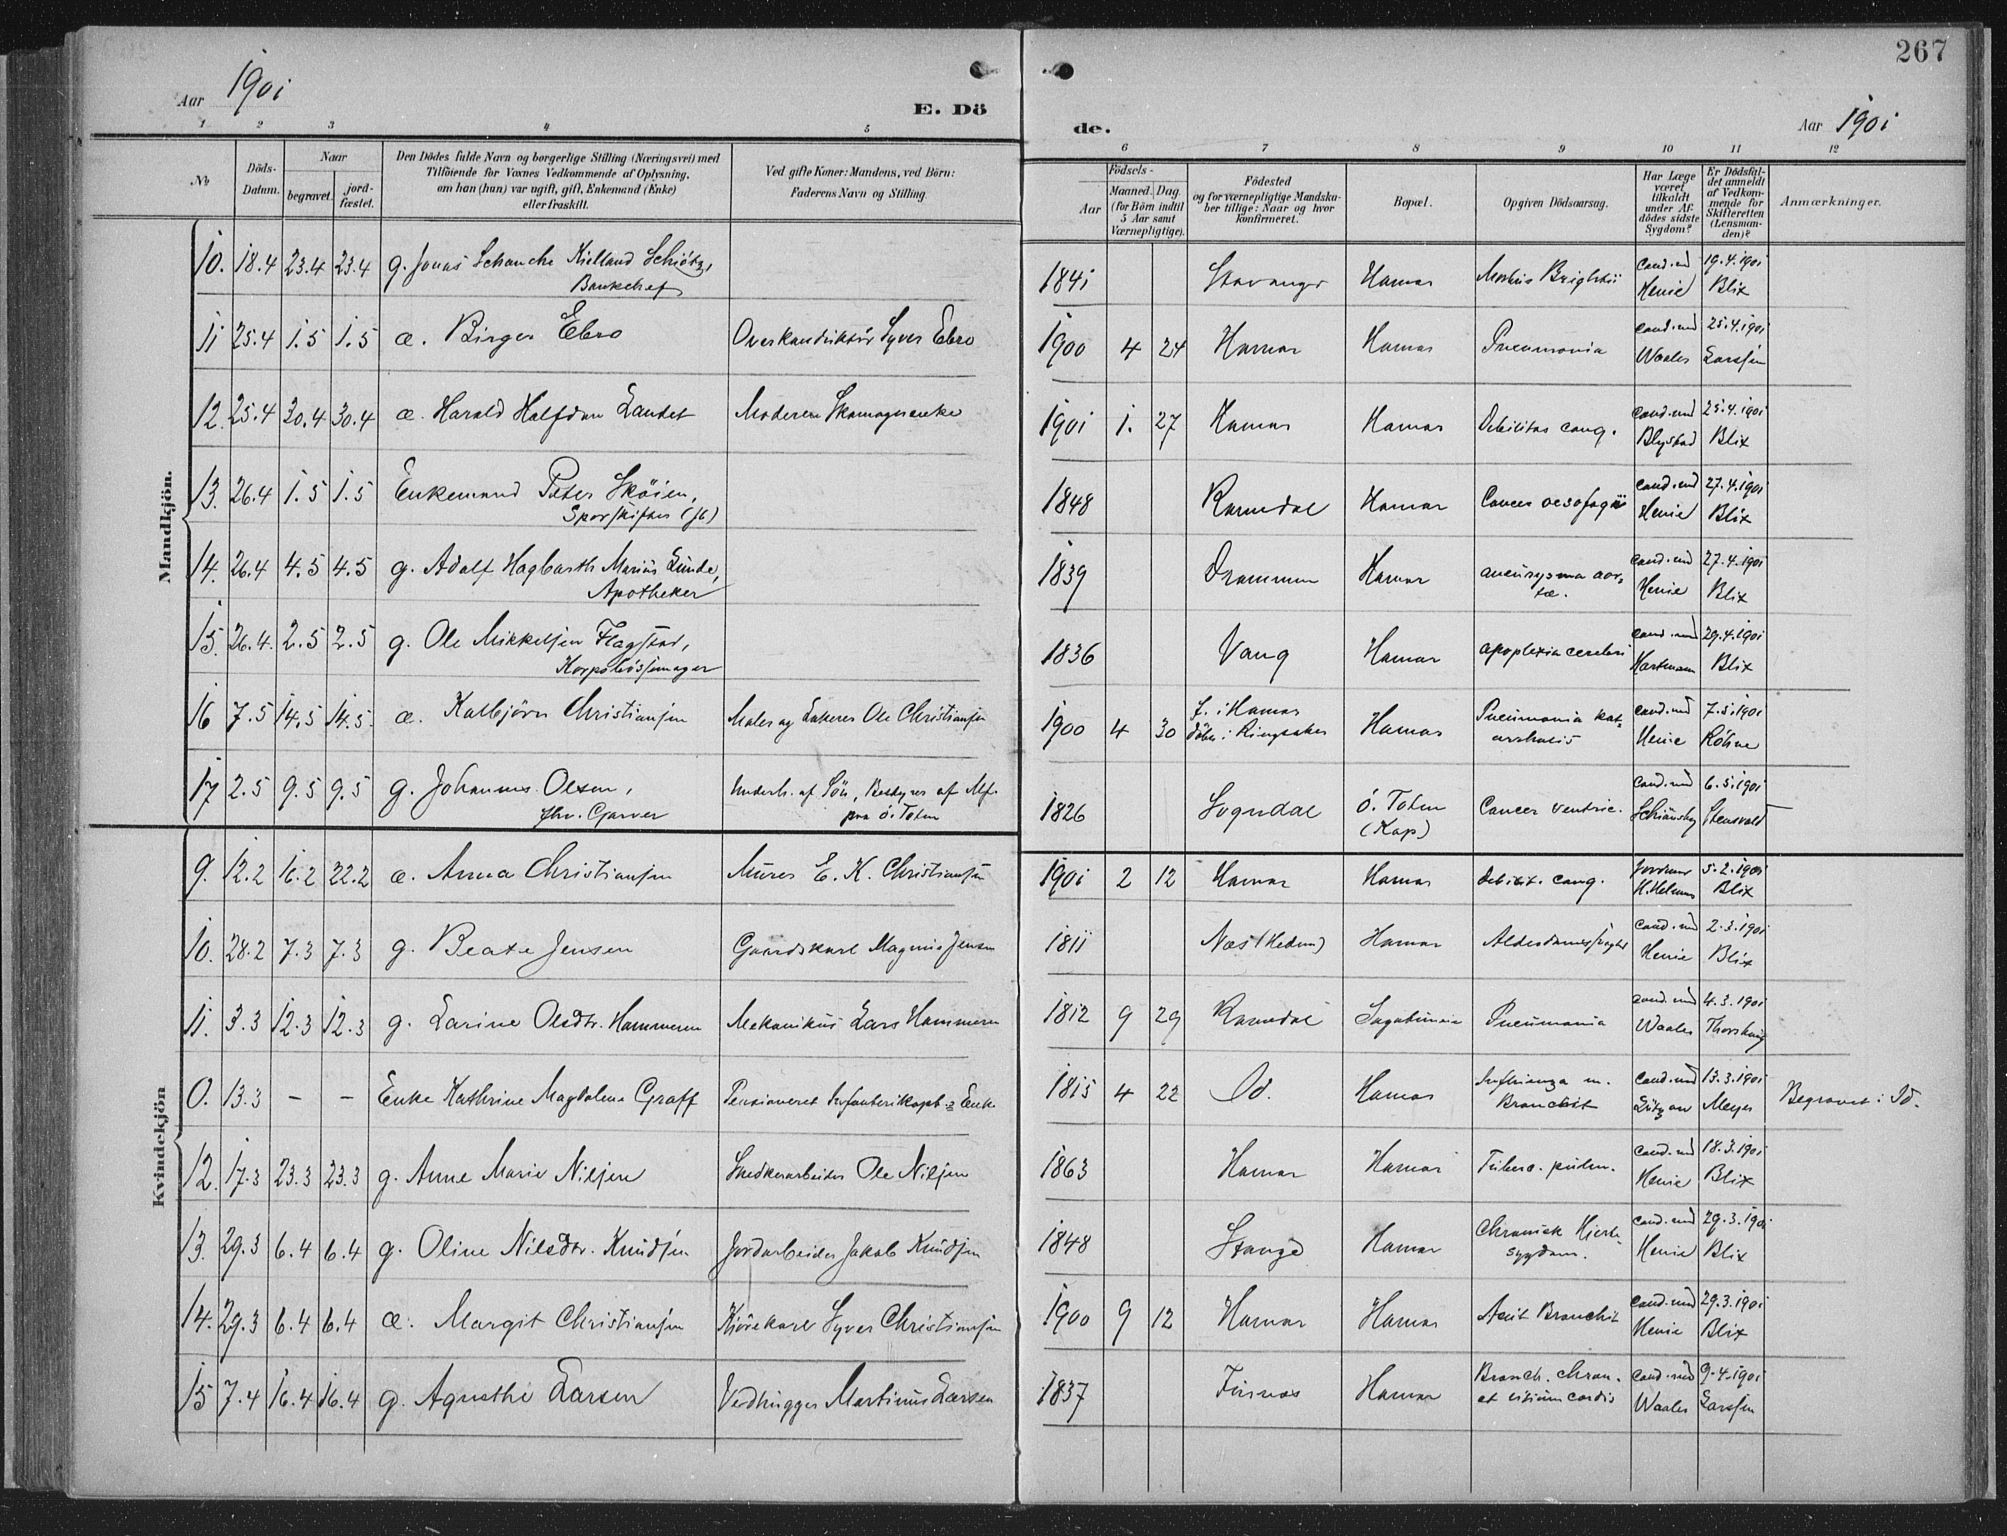 267
Aar 1901
E. Dö
de.
Aar 1901
1 2 3 4 5 6 7 8 9 10 11 12
No
Döds-Datum.
Naar
begravet.
jord-fæstet.
Den Dödes fulde Navn og borgerlige Stilling (Næringsvei) med
Tilföiende for Voxnes Vedkommende af Oplysning,
om han (hun) var ugift, gift, Enkemand (Enke)
eller fraskilt.
Ved gifte Koner: Mandens, ved Börn:
Faderens Navn og Stilling.
Födsels-
Aar
Maaned. Dag.
(for Börn indtil
5 Aar samt
Værnepligtige).
Födested
og for værnepligtige Mandska-
ber tillige: Naar og hvor
konfirmeret.
Bopæl.
Opgiven Dödsaarsag.
Har Læge
været
tilkaldt
under Af-
dödes sidste
Sygdom?
Er Dödsfal-
det anmeldt
af Vedkom-
mende for
Skifteretten
(Lensman-
den)?
Anmærkninger.
Mandkjön.
10. 18.4 23.4 23.4 g. Jonas Schanche Kielland Schiötz, 1841 Stavanger Hamar Morbus Brightii cand. med 19.4.1901
Bankchef Henie Blix
11 25.4 1.5 1.5 æ. Birger Ebro Overkonduktör Syver Ebro 1900 4 24 Hamar Hamar Pneumonia cand. med 25.4.1901
Waaler Larssen
12. 25.4 30.4 30.4 æ. Harald Halfdan Landet Moderen 1901 1. 27 Hamar Hamar Debilitas cong. cand. med 25.4.1901
Blystad Blix
13. 26.4 1.5 1.5 Enkemand Peter Sköien, 1848 Romedal Hamar Cancer oesofagii cand. med 27.4.1901
Sporskifter Henie Blix
14. 26.4 4.5 4.5 g. Adolf Hagbarth Marius Lunde, 1839 Drammen Hamar aneurysma aor-
tæ. cand. med 27.4.1901
Apotheker Henie Blix
15. 26.4. 2.5 2.5 g. Ole Mikkelsen Flagstad, 1836 Vang Hamar apoplexia cerebri cand. med 29.4.1901
Hartmann Blix
16 7.5 14.5 14.5. æ. Kolbjörn Christiansen Maler og Lakerer Ole Christiansen 1900 4 30 f. i Hamar
döbt i Ringsaker Hamar Pneumonia kat-
arrhalis cand. med 7.5.1901
Henie Röhne
17 2.5 9.5 9.5 g. Johannes Olsen, Underh. af Sön, Bestyrer af
fhv. Garver fra Ö. Toten
1826 Sogndal Ö. Toten
(Kap) Cancer ventric. cand. med 6.5.1901
Stensvold
Kvindekjön
9. 12.2 16.2 22.2 æ. Anna Christiansen Murer E. K. Christiansen 1901 2 12 Hamar Hamar debilit. cong. 5.2.1901
Blix
10. 28.2 7.3 7.3 g. Beate Jensen Gaardskarl Magnus Jensen 1811 Næs (Hedm) Hamar Alderdomssvaghed cand. med 2.3.1901
Henie Blix
11. 3.3 12.3 12.3 g. Larine Olsdtr. Hammeren Mekanikus Lars Hammeren 1812 9 29 Romedal Pneumonia cand. med 4.3.1901
Waaler
0. 13.3 – – Enke Kathrine Magdalene Graff Pensioneret Infanterikapt.s Enke 1815 4 22 Od. Hamar Influenza m.
Bronchit cand. med 13.3.1901
Lützow Meyer Begravet i Id.
12. 17.3 23.3 23.3 g. Anne Marie Nilsen Snedkerarbeider Ole Nilsen 1863 Hamar Hamar Tuberc. pulm. cand. med 18.3.1901
Henie Blix
13. 29.3 6.4 6.4 g. Oline Nilsdtr. Knudsen Jordarbeider Jakob Knudsen 1848 Stange Hamar Chronisk Hjerte-
sygdom. cand. med 29.3.1901
Henie Blix
14. 29.3 6.4 6.4 æ. Margit Christiansen Kjörekarl Syver Christiansen 1900 9 12 Hamar Hamar Acut Bronchit cand. med 29.3.1901
Henie Blix
15 7.4 16.4 16.4 g. Agnethe Larsen Vedhugger Martinus Larsen 1837 Furnes Hamar Bronch. chron.
et vitium cordis cand. med 9.4.1901
Waaler Larssen